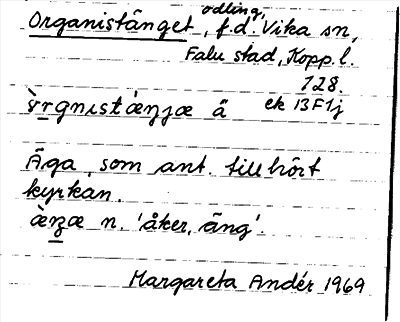 odling,
Organistänget, f.d. Vika sn,
Falu stad, Kopp. l.
128.
ek 13F1j
ä
Äga, som ant. tillhört
kyrkan.
n. 'åker, äng'.
Margareta Andér 1969